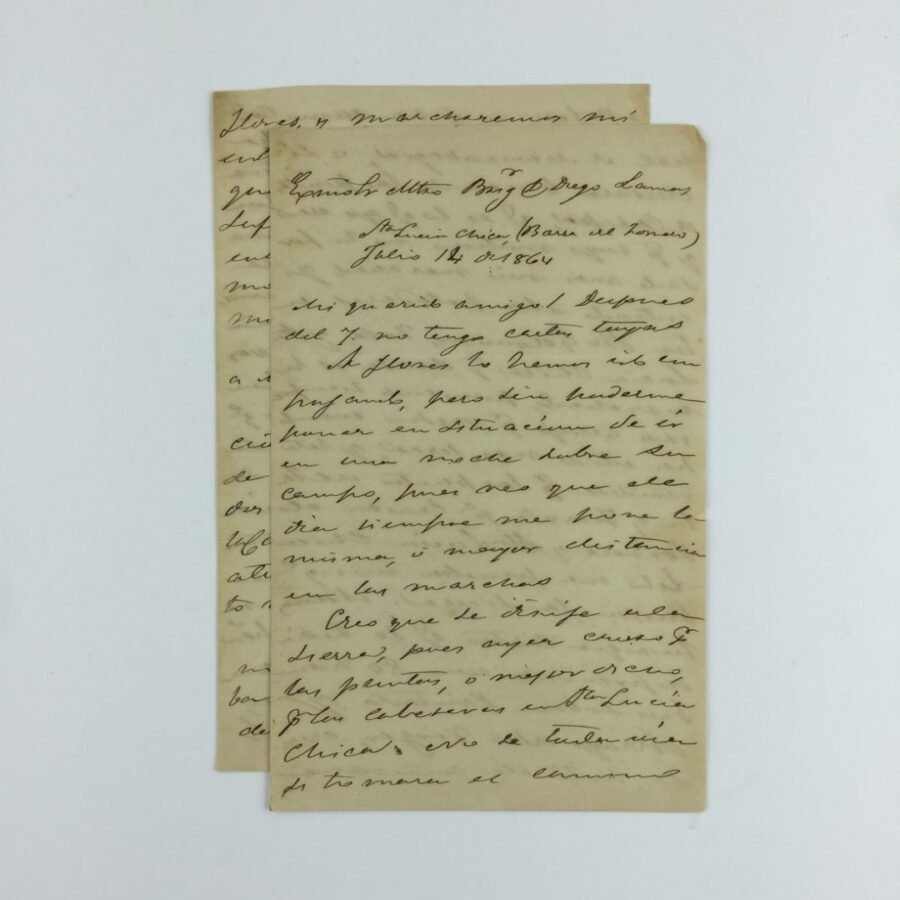 Flores, y marcharemos mi
ent
que
Exmo Sr Mtro Brigr D Diego Lamas
Sta Lucia Chica, (Barra del
Julio 14 de 1864
Mi querido amigo! Despues
del 7. no tengo cartas tuyas
A Flores lo hemos ido em
pujando, pero sin poderme
poner en situacion de ir
en una noche sobre su
campo, pues veo que de
dia siempre me pone la
misma, o mayor distancia
en las marchas
Creo que se dirije a la
sierra, pues ayer cruzo
las puntas, o mejor dicho,
las cabeseras en Sta Lucia
Chica. No se todavia
si tomara el camino
ma
a
de
ati
to
ba
de